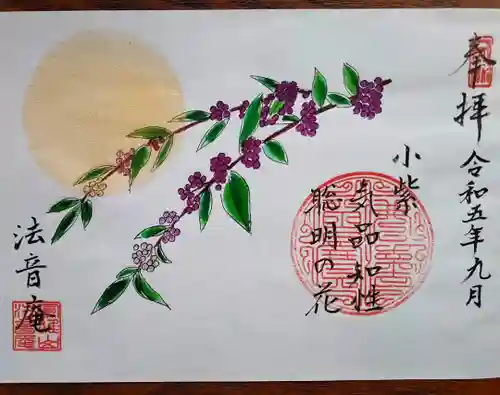 奉拝
令和五年九月
小紫
気品知性
聡明の花
法音庵